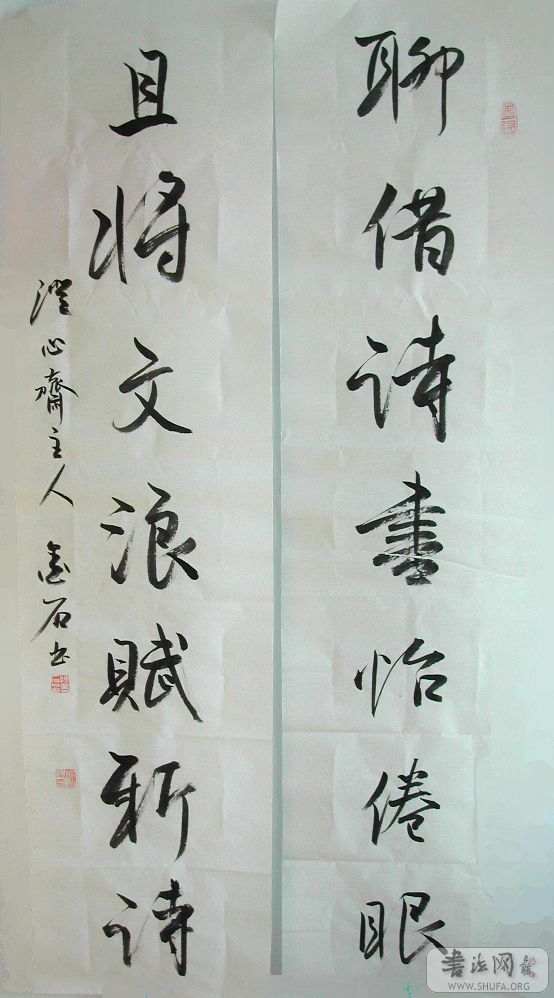 聊借诗書怡倦眼
且将文浪賦新诗
澄心齋主人金石书
書法网
WWW.SHUFA.ORG